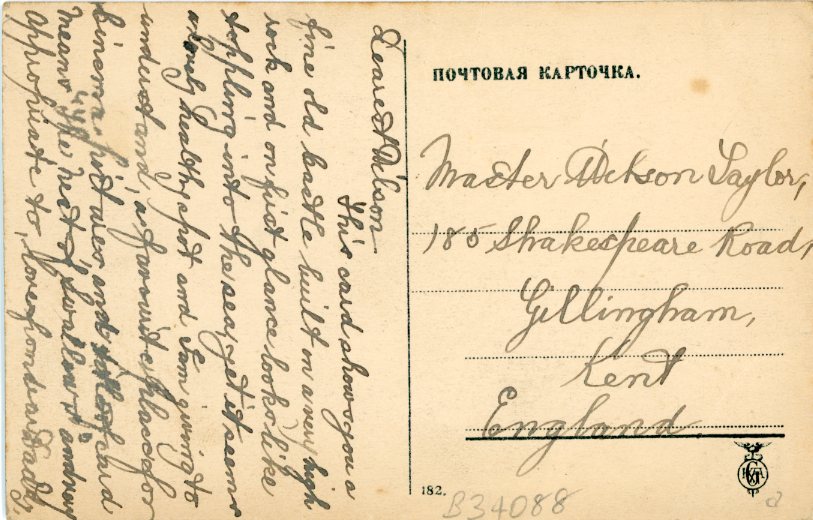 Dearest Wilson
This card shows you a
fine old castle built on a very high
rock and on first glance looks like
toppling into the sea, yet it seems
a lovely healthy spot and I am giving to
understand a favourite place for
cinema pictures and card
means "The Nest of Swallows" and very
appropriate to, love fondest Daddy.
ПОЧТОВАЯ КАРТОЧКА.
Master Taylor,
185 Shakespeare Road,
Gillingham,
Kent
England.
182.
B34088